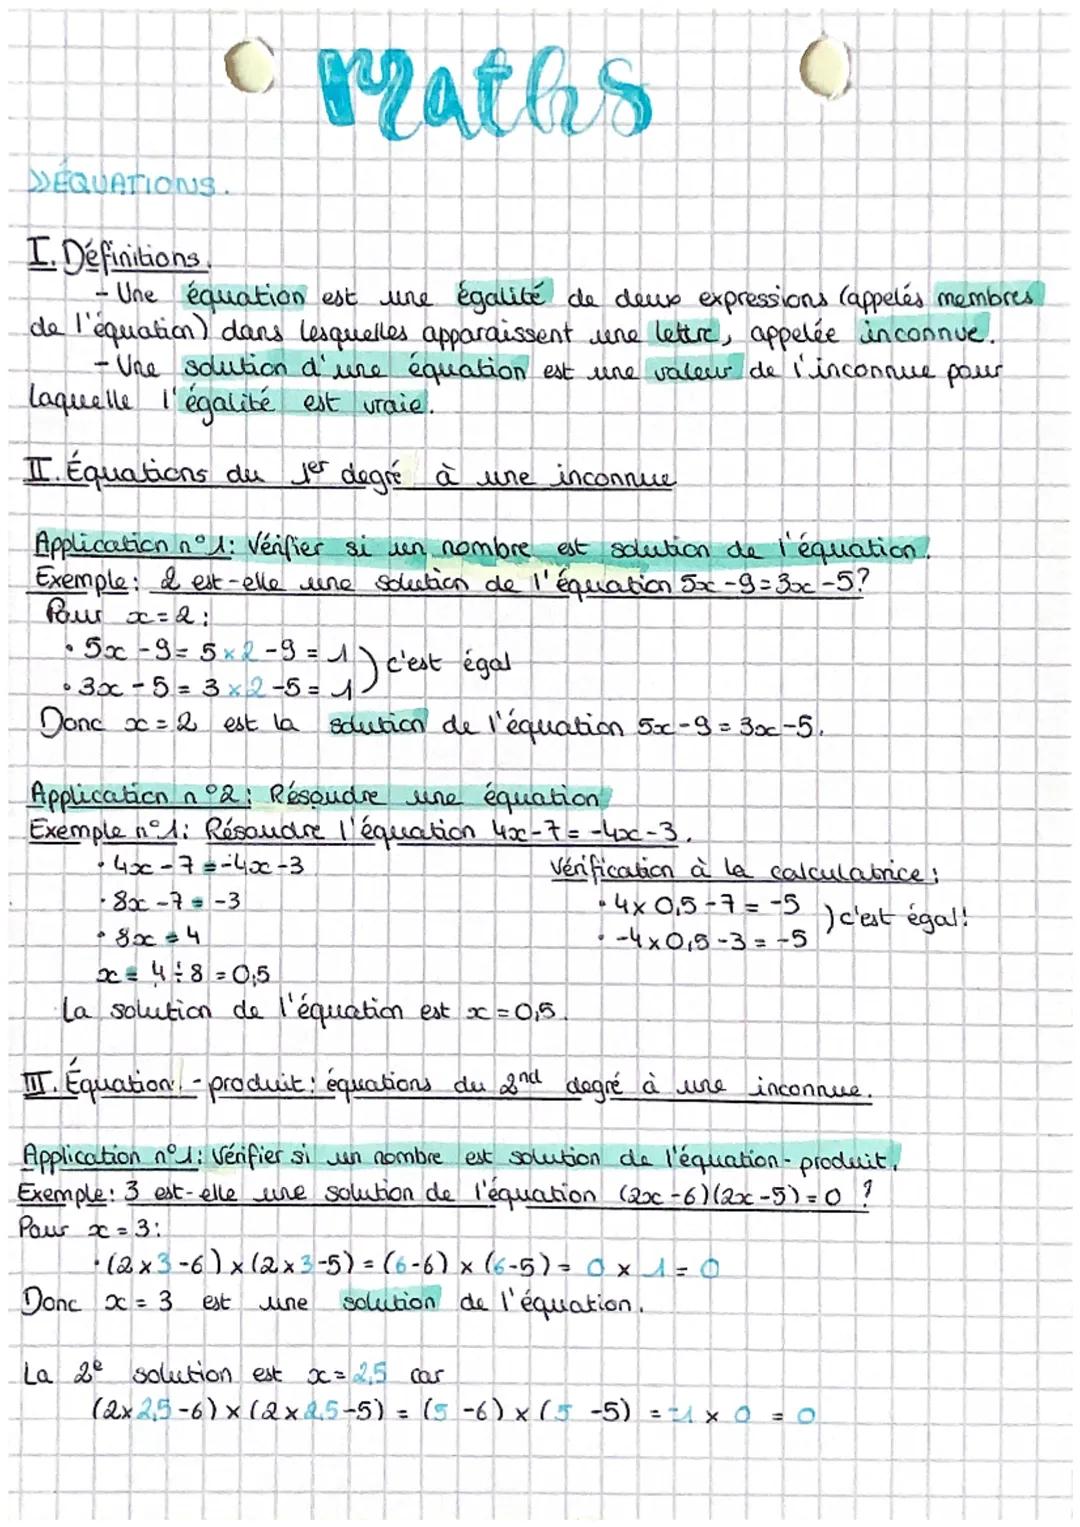 Maths
>> ÉQUATIONS.
I. Définitions.
- Une équation est une égalité de deux expressions (appelés membres
de l'équation) dans lesquelles apparaissent une lettre, appelée inconnue.
- Une solution d'une équation est une valeur de l'inconnue pour
laquelle l'égalité est vraie.
II. Équations du 1er degré à une inconnue
Application n°1: Vérifier si un nombre est solution de l'équation.
Exemple: 2 est-elle une solution de l'équation 5x-9=3x-5?
Pour x=2:
• 5x-9= 5×2-9=1 ) c'est égal
• 3x-5= 3×2-5=1
Donc x=2 est la solution de l'équation 5x-9=3x-5.
Application n°2: Résoudre une équation
Exemple n°1: Résoudre l'équation 4x-7=-4x-3.
• 4x-7=-4x-3
• 8x-7=-3
• 8x=4
x=4÷8=0,5
Vérification à la calculatrice:
• 4×0,5-7=-5 ) c'est égal!
• -4×0,5-3=-5
La solution de l'équation est x=0,5.
III. Équation-produit: équations du 2nd degré à une inconnue.
Application n°1: Vérifier si un nombre est solution de l'équation-produit.
Exemple: 3 est-elle une solution de l'équation (2x-6)(2x-5)=0 ?
Pour x=3:
• (2×3-6)×(2×3-5)=(6-6)×(6-5)=0×1=0
Donc x=3 est une solution de l'équation.
La 2e solution est x=2,5 car
(2×2,5-6)×(2×2,5-5)=(5-6)×(5-5)=-1×0=0